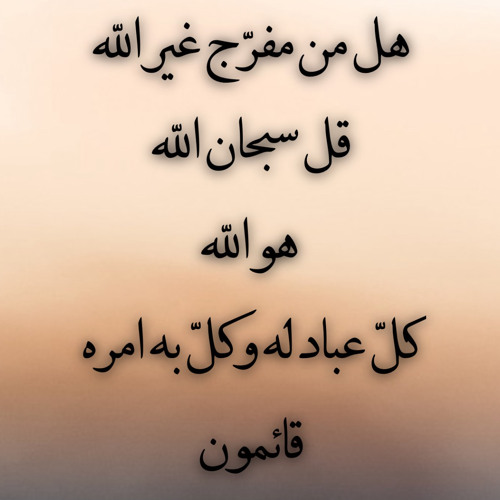 هل من مفرّج غير الله
قل سبحان الله
هو الله
كلّ عباد له وكلّ به امره
قائمون